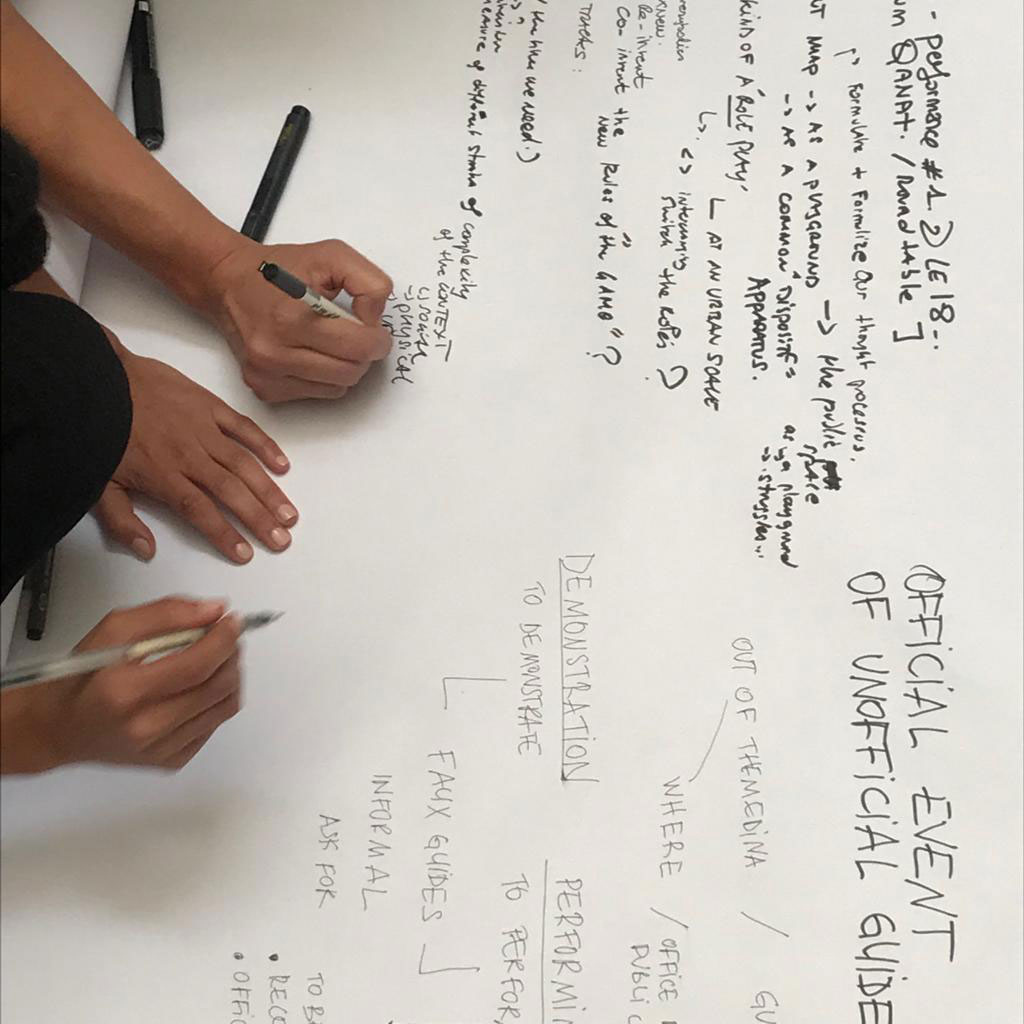 - performance #1. 2) LE 18-..
QANAT. / Round table ]
↳ Formulate + Formalize our thought processus.
MAP -> AS A PLAYGROUND -> the public space
-> AS A COMMON "DISPOSITIF" as a playground
APPARATUS. -> struggles...
KIND OF A "ROLE PLAY,
↳ AT AN URBAN SCALE
↳ <> interchanging
switch the roles?
Re-invent
Co-invent the
New Rules of the "GAME"?
the time we need.)
measure of different strates of complexity
of the CONTEXT
-> social
-> physical
OFFICIAL EVENT
OF UNOFFICIAL GUIDE
OUT OF THE MEDINA / GU
WHERE / OFFICE
PUBLIC
DEMONSTRATION PERFORMI
TO DEMONSTRATE TO PERFOR
FAUX GUIDES
INFORMAL
ASK FOR TO B
• RECO
• OFFIC